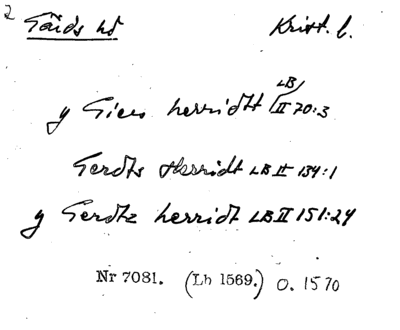 2
Gärds hd Krist. l.
y Giers herridtt (LB) II 70:3
Gerdts Herridt LB II 134:1
y Gerdtz herridt LB II 151:24
Nr 7081. (Lh 1569.) o. 1570